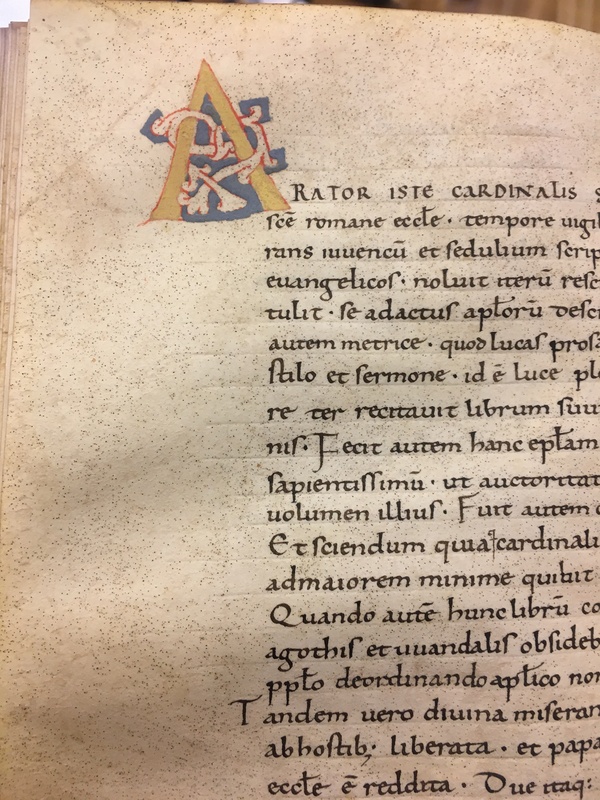 ARATOR ISTE CARDINALIS
scē romane eccłe · tempore
rans iuuencū et sedulium
euangelicos · noluit iterū
tulit · se adactus apłorū
autem metrice · quod lucas
stilo et sermone · id ē luce
re ter recitauit librum
nis · Fecit autem hanc epłam
sapientissimū · ut
uolumen illius · Fuit autem
Et sciendum quia
admaiorem minime quibit
Quando autē hunc librū
agothis et uuandalis
ppło deordinando apłico
Tandem uero diuina
ab hostib; liberata · et
eccłe ē reddita · Due itaq: